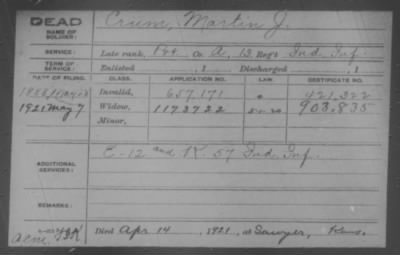 DEAD
NAME OF SOLDIER: Crum, Martin J.
SERVICE: Late rank, Pvt Co. A, 13 Reg't Ind. Inf.
TERM OF SERVICE: Enlisted , 1 Discharged , 1
DATE OF FILING. CLASS. APPLICATION NO. LAW. CERTIFICATE NO.
1888 Invalid, 657.171 421.322
1921 May 7 Widow, 1173722 903.835
Minor,
ADDITIONAL SERVICES: E-12 and K. 57 Ind. Inf.
REMARKS:
Died Apr 14, 1921, at Sawyer, Kans.